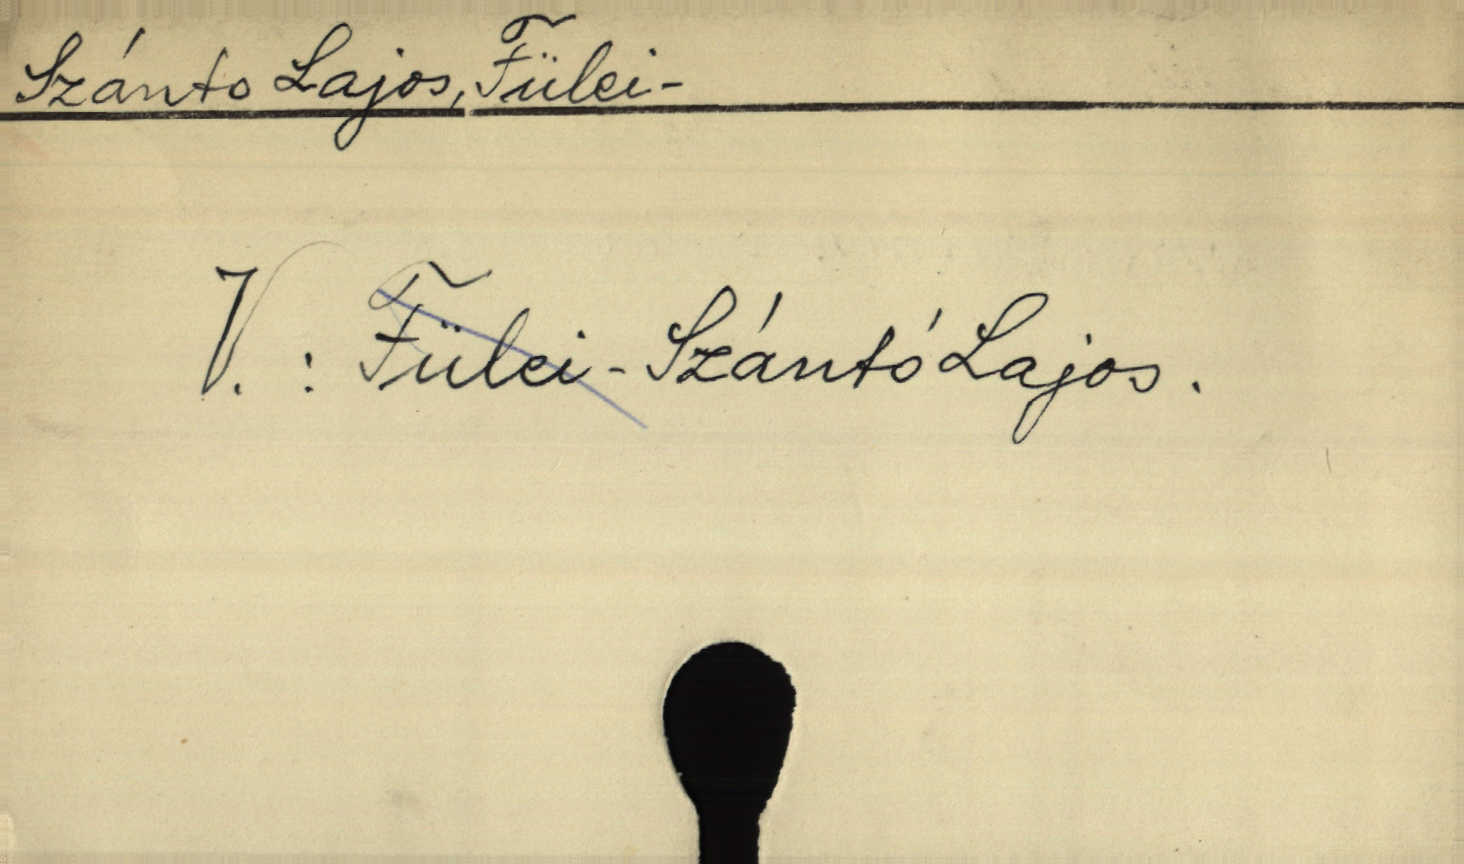 Szánto Lajos, Fülei-
V. : Fülei - Szántó Lajos.